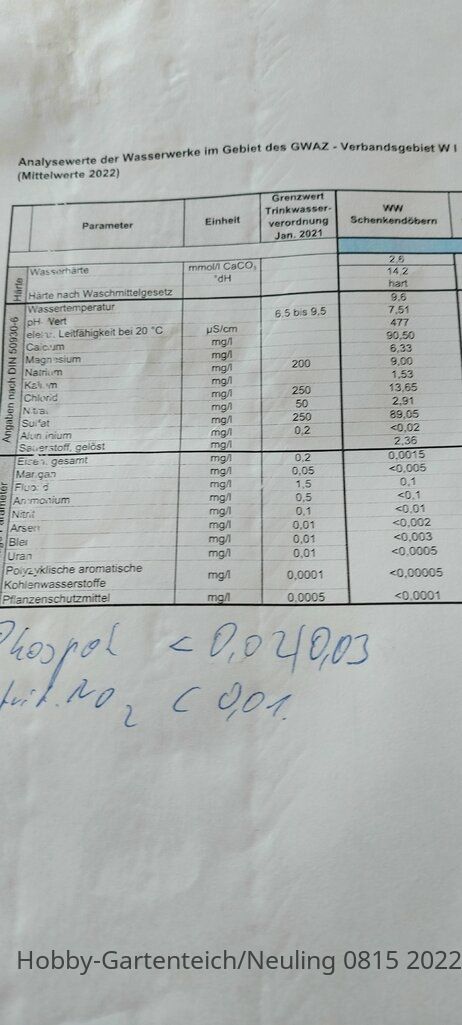 Analysewerte der Wasserwerke im Gebiet des GWAZ - Verbandsgebiet W I
(Mittelwerte 2022)
Parameter Einheit Grenzwert Trinkwasser-verordnung Jan. 2021 WW Schenkendöbern
Härte
Wasserhärte mmol/l CaCO3 2,6
°dH 14,2
Härte nach Waschmittelgesetz hart
Angaben nach DIN 50930-6
Wassertemperatur 9,6
pH-Wert 6,5 bis 9,5 7,51
elektr. Leitfähigkeit bei 20 °C µS/cm 477
Calcium mg/l 90,50
Magnesium mg/l 6,33
Natrium mg/l 200 9,00
Kalium mg/l 1,53
Chlorid mg/l 250 13,65
Nitrat mg/l 50 2,91
Sulfat mg/l 250 89,05
Aluminium mg/l 0,2 <0,02
Sauerstoff, gelöst mg/l 2,36
Parameter
Eisen, gesamt mg/l 0,2 0,0015
Mangan mg/l 0,05 <0,005
Fluorid mg/l 1,5 0,1
Ammonium mg/l 0,5 <0,1
Nitrit mg/l 0,1 <0,01
Arsen mg/l 0,01 <0,002
Blei mg/l 0,01 <0,003
Uran mg/l 0,01 <0,0005
Polyzyklische aromatische
Kohlenwasserstoffe mg/l 0,0001 <0,00005
Pflanzenschutzmittel mg/l 0,0005 <0,0001
< 0,02/0,03
NO2 < 0,01.
Hobby-Gartenteich/Neuling 0815 2022